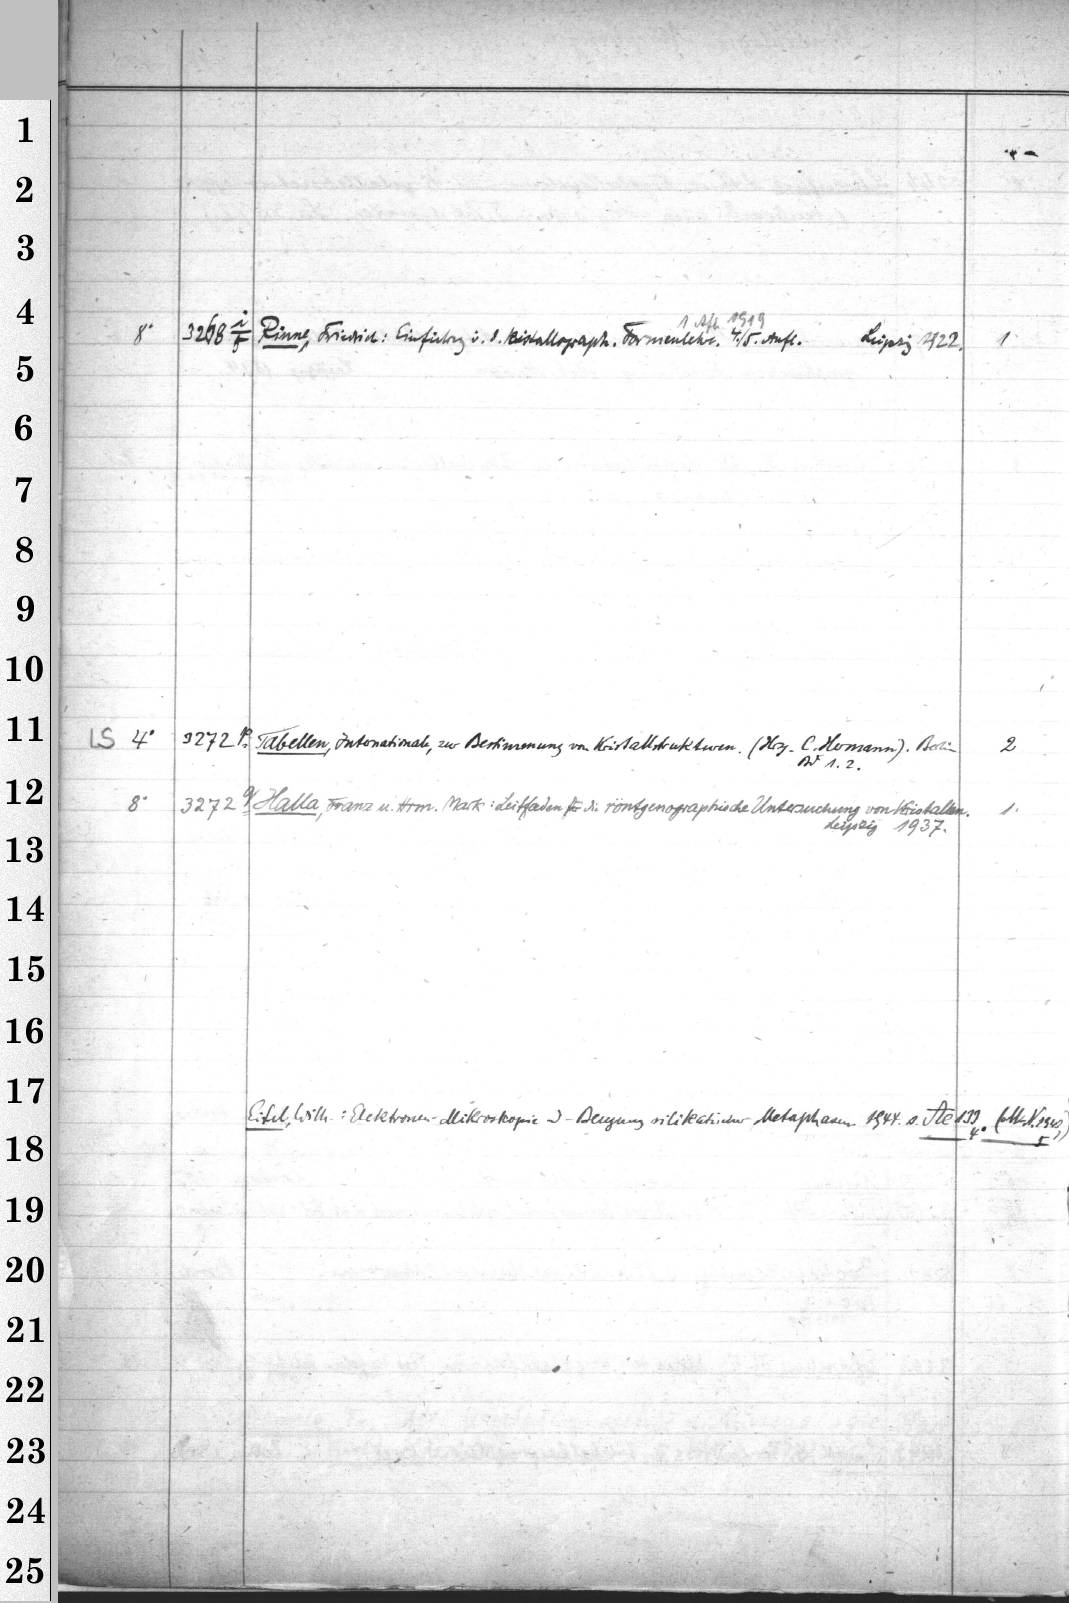 1
2
3
4
1. Afl. 1919
8° 3268 i/5 Rinne, Friedrich: Einführg i. d. kristallograph. Formenlehre. 4./5. Aufl. Leipzig 1922. 1
5
6
7
8
9
10
11
LS 4° 3272 p. Tabellen, Internationale, zur Bestimmung von Kristallstrukturen. (Hrg. C. Hermann). Berlin 2
Bd 1. 2.
12
8° 3272 q Halla, Franz u. Hrm. Mark: Leitfaden für die röntgenographische Untersuchung von Kristallen. 1.
Leipzig 1937.
13
14
15
16
17
Eitel, Wilh.: Elektronen-Mikroskopie u -Beugung silikatischer Metaphasen 1944. s. Ae 139 4°
18
19
20
21
22
23
24
25